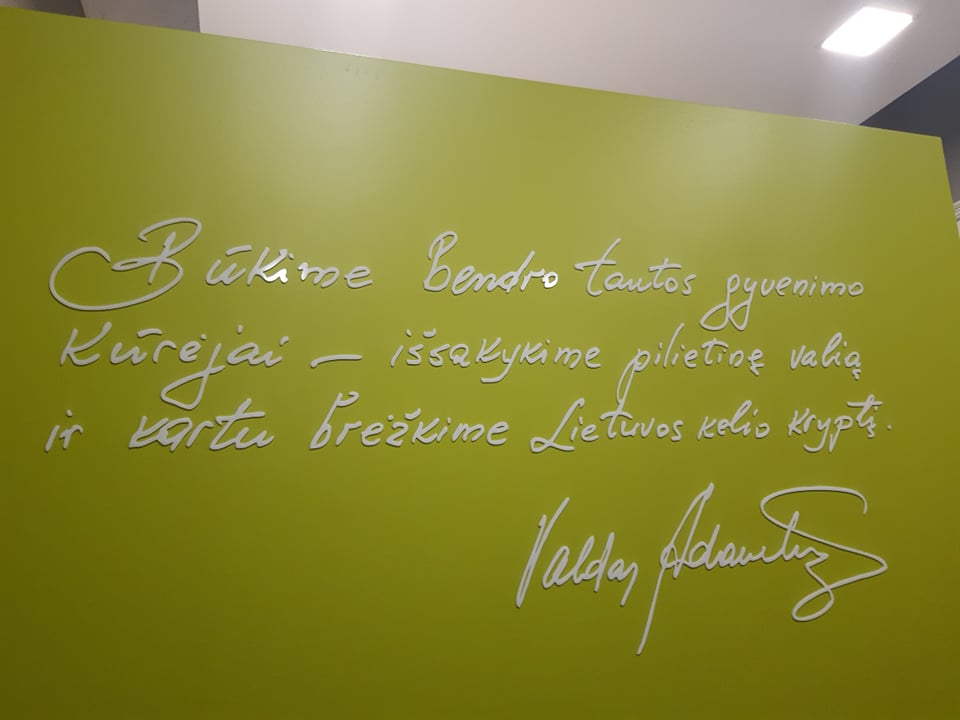 Būkime Bendro tautos gyvenimo
Kūrėjai – išsąkykime pilietinę valią
ir kartu brėžkime Lietuvos kelio kryptį.
Valdas Adamkus